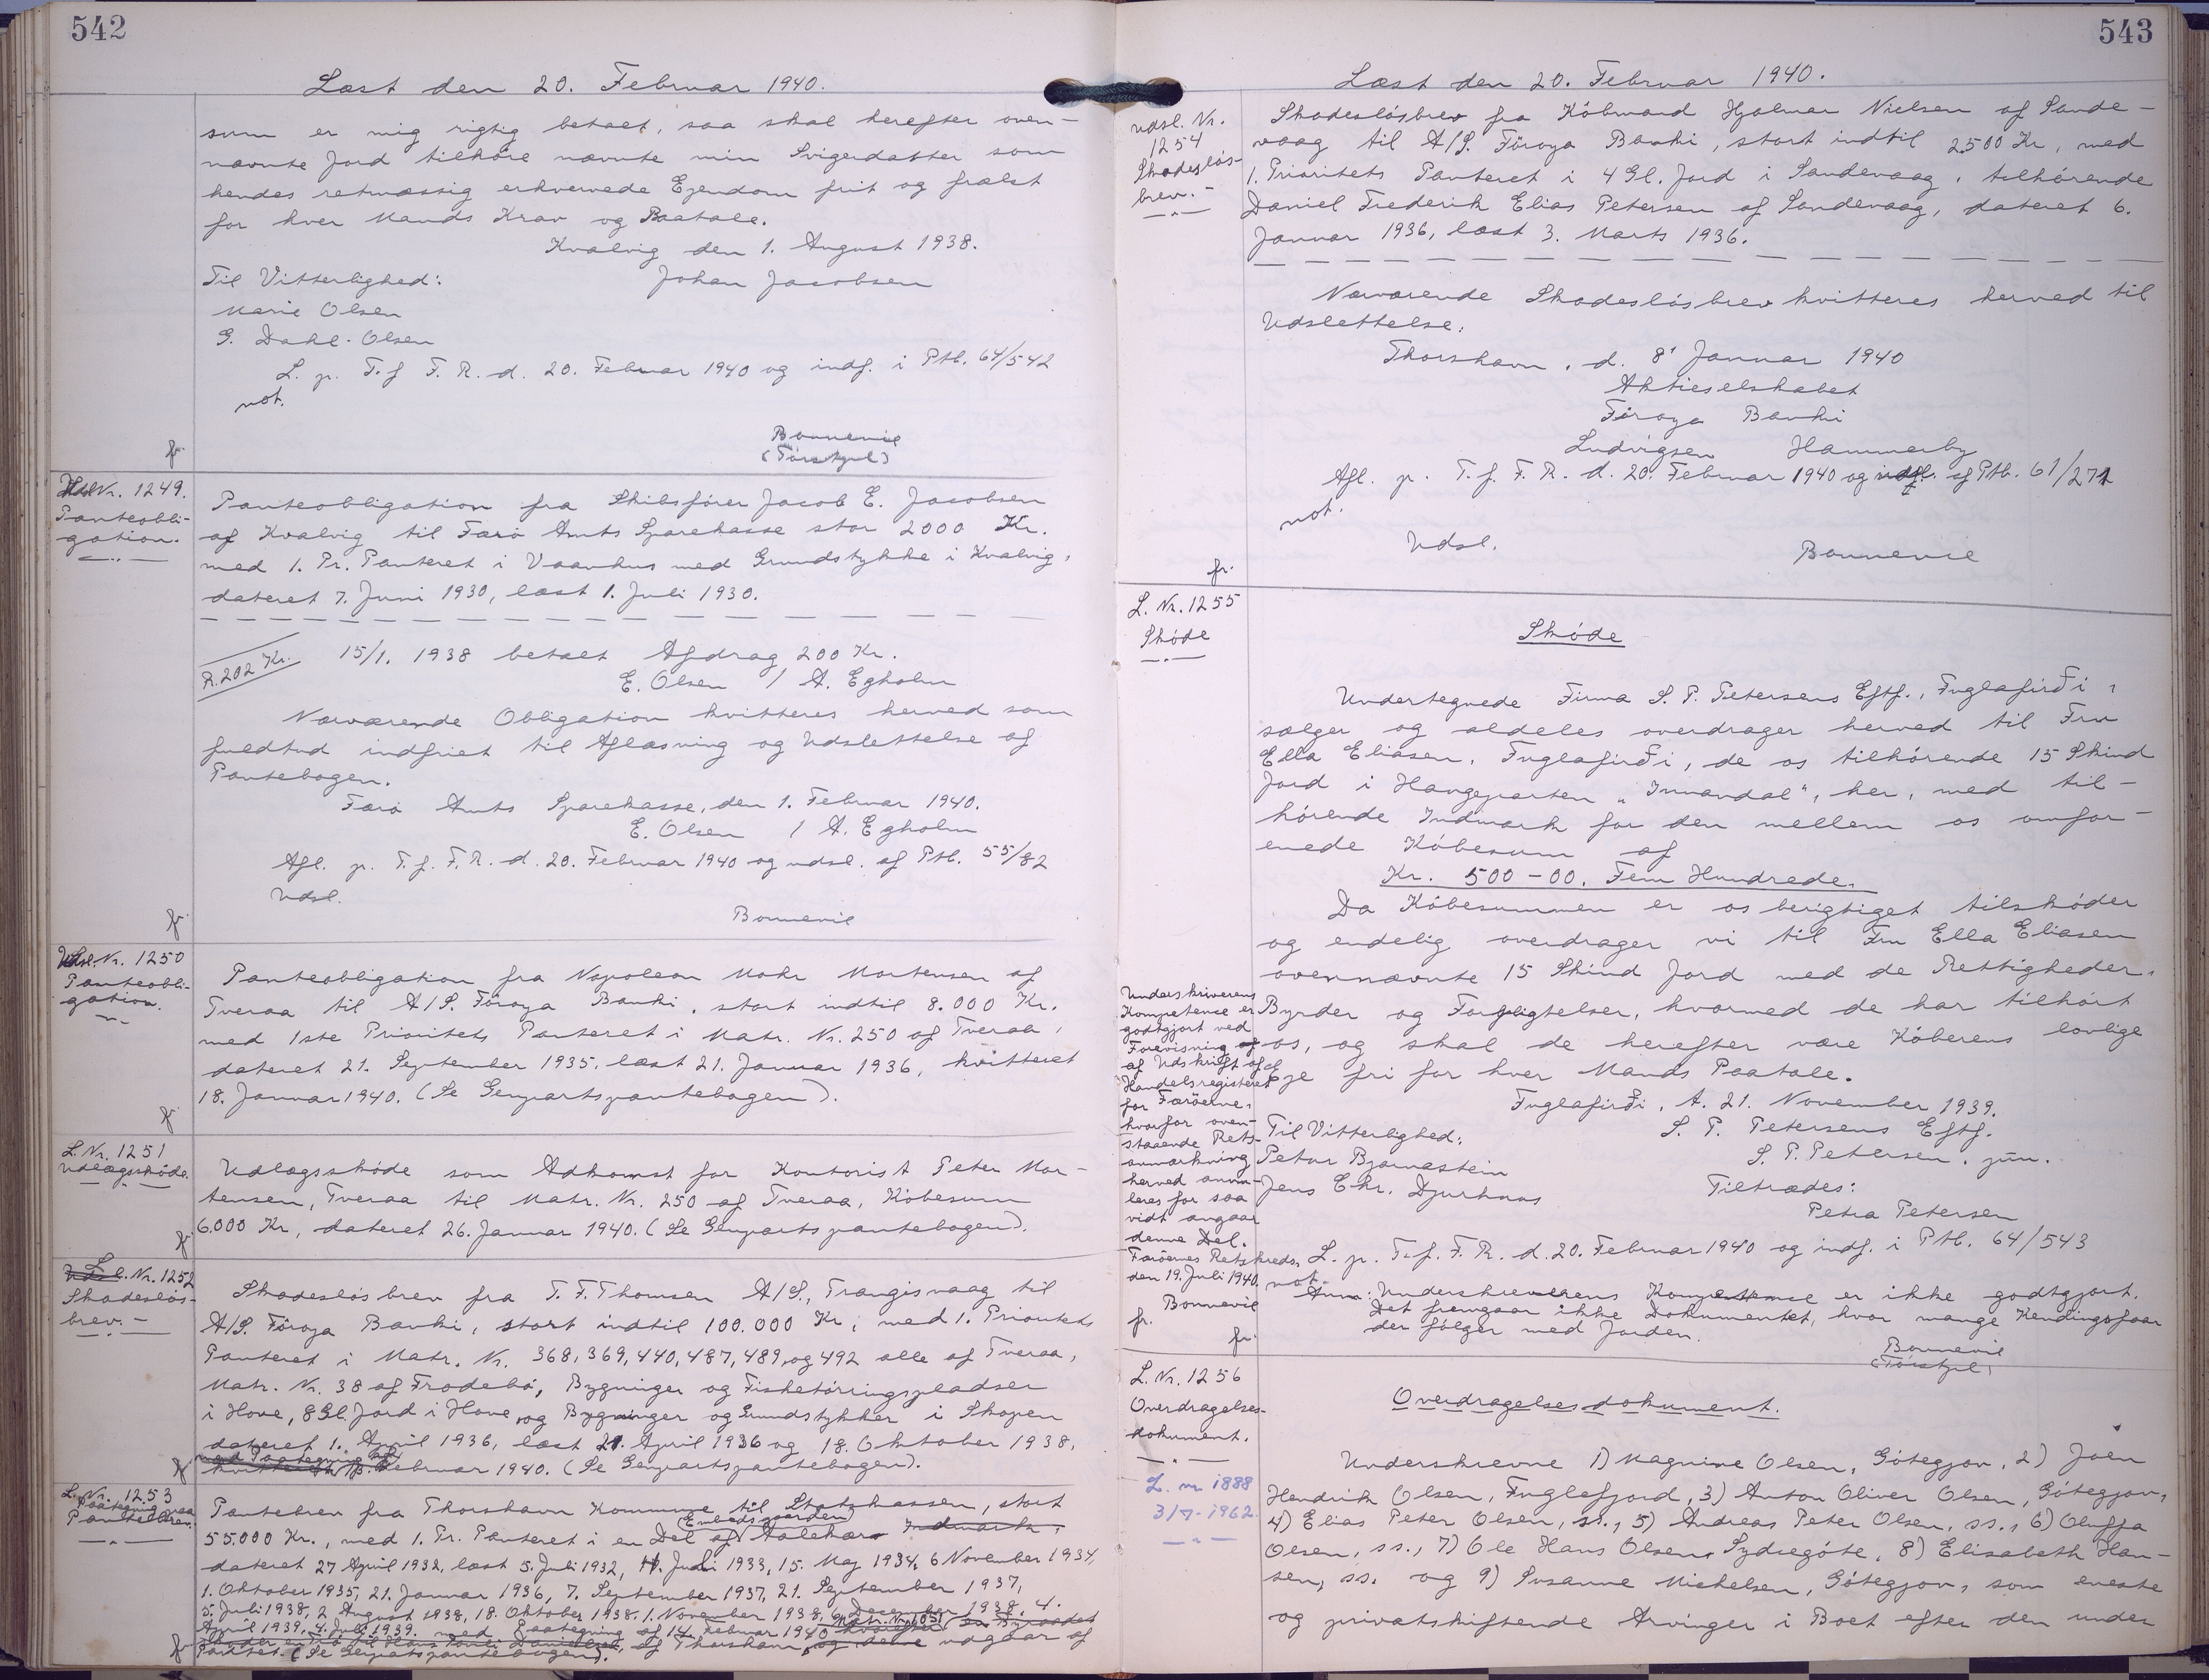 542
Læst den 20. Februar 1940.
sum er mig rigtig betalt, saa skal herefter oven-
nævnte Jord tilhøre nævnte min Svigerdatter som
hendes retmæssig erhvervede Ejendom frit og frelst
for hver Mands Krav og Paatale.
Kvalvig den 1. August 1938.
Til Vitterlighed: Johan Jacobsen
Marie Olsen
G. Dahl-Olsen
L. p. T. f F. R. d. 20. Februar 1940 og indf. i Ptb. 64/542
not.
Bonnevie
fr.
Udsl. Nr. 1249.
Panteobli-
gation.
Panteobligation fra Skibsfører Jacob E. Jacobsen
af Kvalvig til Færø Amts Sparekasse stor 2000 Kr.
med 1. Pr. Panteret i Vaanhus med Grundstykke i Kvalvig,
dateret 7. Juni 1930, læst 1. Juli 1930.
R. 202 Kr. 15/1. 1938 betalt Afdrag 200 Kr.
E. Olsen / A. Egholm
Nærværende Obligation kvitteres herved som
fuldtud indfriet til Aflæsning og Udslettelse af
Pantebogen.
Færø Amts Sparekasse, den 1. Februar 1940.
E. Olsen / A. Egholm
Afl. p. T. f. F. R. d. 20. Februar 1940 og udsl. af Ptb. 55/82
Udsl.
Bonnevie
fr.
Udsl. Nr. 1250
Panteobli-
gation.
Panteobligation fra Napoleon Mohr Mortensen af
Tveraa til A/S. Föroya Banki, stort indtil 8.000 Kr.
med 1ste Prioritets Panteret i Matr. Nr. 250 af Tveraa,
dateret 21. September 1935, læst 21. Januar 1936, kvitteret
18. Januar 1940. (Se Genpartspantebogen).
fr
L. Nr. 1251
Udlægsskøde.
Udlægsskøde som Adkomst for Kontorist Peter Mor-
tensen, Tveraa til Matr. Nr. 250 af Tveraa, Købesum
6.000 Kr, dateret 26. Januar 1940. (Se Genpartspantebogen).
fr
L. Nr. 1252
Skadesløs-
brev.-
Skadesløsbrev fra T. F. Thomsen A/S., Trangisvaag til
A/S. Föroya Banki, stort indtil 100.000 Kr, med 1. Prioritets
Panteret i Matr. Nr. 368, 369, 440, 487, 489, og 492 alle af Tveraa,
Matr. Nr. 38 af Frodebø, Bygninger og Fisketørringspladser
i Hove, 8 Gl. Jord i Hove, og Bygninger og Grundstykker i Skopen
dateret 1. April 1936, læst 21. April 1936 og 18. Oktober 1938,
med Paategning af
13. Februar 1940. (Se Genpartspantebogen).
fr
L. Nr. 1253
Paategning paa
Pantebrev.
Pantebrev fra Thorshavn Kommune til Statskassen, stort
(Embedsgaarden)
55.000 Kr., med 1. Pr. Panteret i en Del af Aalekærs Indmark,
dateret 27 April 1932, læst 5. Juli 1932, 11. Juli 1933, 15. Maj 1934, 6 November 1934,
1. Oktober 1935, 21. Januar 1936, 7. September 1937, 21. September 1937,
5. Juli 1938, 2 August 1938, 18. Oktober 1938, 1. November 1938, 6. December 1938, 4.
April 1939, 4. Juli 1939. med Paategning af 14. Februar 1940
af Thorshavn udgaar af
Pantet. (Se Genpartspantebogen).
fr
543
Læst den 20. Februar 1940.
Udsl. Nr.
1254
Skadesløs-
brev.-
Skadesløsbrev fra Købmand Hjalmar Nielsen af Sande-
vaag til A/S. Föroya Banki, stort indtil 2.500 Kr, med
1. Prioritets Panteret i 4 Gl. Jord i Sandevaag, tilhørende
Daniel Frederik Elias Petersen af Sandevaag, dateret 6.
Januar 1936, læst 3. Marts 1936.
Nærværende Skadesløsbrev kvitteres herved til
Udslettelse.
Thorshavn, d. 8' Januar 1940
Aktieselskabet
Föroya Banki
Ludvigsen Hammerby
Afl. p. T. f. F. R. d. 20. Februar 1940 og udsl. af Ptb. 61/271
not.
Udsl. Bonnevie
fr.
L. Nr. 1255
Skøde
Skøde
Undertegnede Firma S. P. Petersens Eftf., Fuglafirði,
sælger og aldeles overdrager herved til Fru
Ella Eliasen, Fuglafirði, de os tilhørende 15 Skind
Jord i Haugeparten "Innandal", her, med til-
hørende Indmark for den mellem os omfor-
enede Købesum af
Kr. 500-00. Fem Hundrede.
Da Købesummen er os berigtiget tilskøder
og endelig overdrager vi til Fru Ella Eliasen
ovennævnte 15 Skind Jord med de Rettigheder,
Byrder og Forpligtelser, hvormed de har tilhørt
os, og skal de herefter være Køberens lovlige
Eje fri for hver Mands Paatale.
Fuglafirði, d. 21. November 1939.
Til Vitterlighed: S. P. Petersens Eftf.
Petur Bjarnastein S. P. Petersen, jun.
Jens Chr. Djurhuus Tiltrædes:
Petra Petersen
L. p. T. f. F. R. d. 20. Februar 1940 og indf. i Ptb. 64/543
not.
Anm: Underskriverens Kompetence er ikke godtgjort.
Det fremgaar ikke Dokumentet, hvor mange Kendingsfaar
der følger med Jorden.
Bonnevie
Underskriverens
Kompetence er
godtgjort ved
Forevisning
af Udskrift af
Handelsregisteret
for Færöerne,
hvorfor oven-
staaende Rets-
anmærkning
herved annu-
leres for saa
vidt angaar
denne Del.
Færöernes Retskreds,
den 19. Juli 1940.
Bonnevie
fr.
fr.
L. Nr. 1256
Overdragelses-
dokument.
L. nr 1888
3/7-1962
Overdragelsesdokument.
Underskrevne 1) Magnine Olsen, Gøtegjov, 2) Joen
Hendrik Olsen, Fuglefjord, 3) Anton Oliver Olsen, Gøtegjov,
4) Elias Peter Olsen, ss., 5) Andreas Peter Olsen, ss., 6) Oluffa
Olsen, ss., 7) Ole Hans Olsen, Sydregøte, 8) Elisabeth Han-
sen, ss. og 9) Susanne Michelsen, Gøtegjov, som eneste
og privatskiftende Arvinger i Boet efter den under